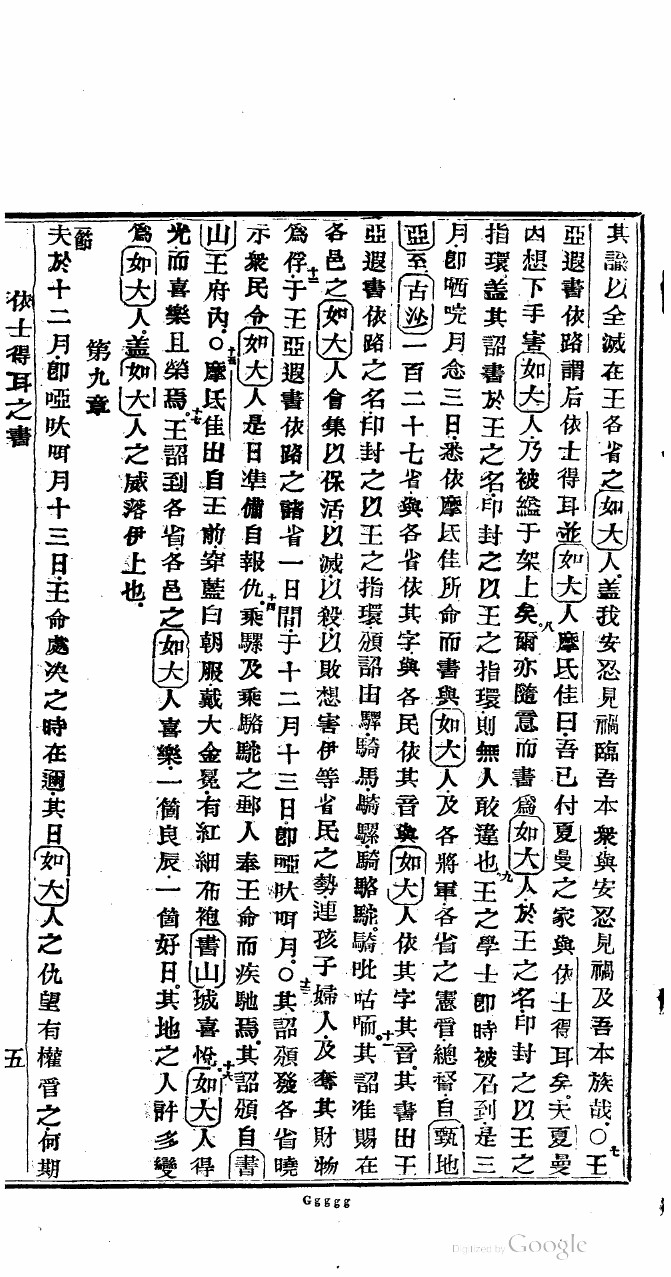 其諭以全滅在王各省之如大人蓋我安忍見禍臨吾本衆與安忍見禍及吾本族哉○七王
亞遐書依路謂后依士得耳並如大人摩氐佳曰吾已付夏曼之家與依士得耳矣夫夏曼
因想下手害如大人乃被縊于架上矣八爾亦隨意而書爲如大人於王之名印封之以王之
指環蓋其詔書於王之名印封之以王之指環則無人敢違也九王之學士卽時被召到是三
月卽哂唍月念三日悉依摩氐佳所命而書與如大人及各將軍各省之憲官總督自甄地
亞至古沙一百二十七省與各省依其字與各民依其音與如大人依其字其音十其書出王
亞遐書依路之名印封之以王之指環頒詔由驛騎馬騎騾騎駱駝騎吡咕喕十一其詔准賜在
各邑之如大人會集以保活以滅以殺以敗想害伊等省民之勢連孩子婦人及奪其財物
十二爲俘于王亞遐書依路之諸省一日間于十二月十三日卽啞吠呀月○十三其詔頒發各省曉
示衆民令如大人是日準備自報仇十四乘騾及乘駱駝之郵人奉王命而疾馳焉其詔頒自書
山王府內○十五摩氐佳出自王前穿藍白朝服戴大金冕有紅細布袍書山城喜悅十六如大人得
光而喜樂且榮焉十七王詔到各省各邑之如大人喜樂一箇良辰一箇好日其地之人許多變
爲如大人蓋如大人之威落伊上也
第九章
一節夫於十二月卽啞吠呀月十三日王命處決之時在邇其日如大人之仇望有權管之何期
依士得耳之書
五
Ggggg
Digitized by Google